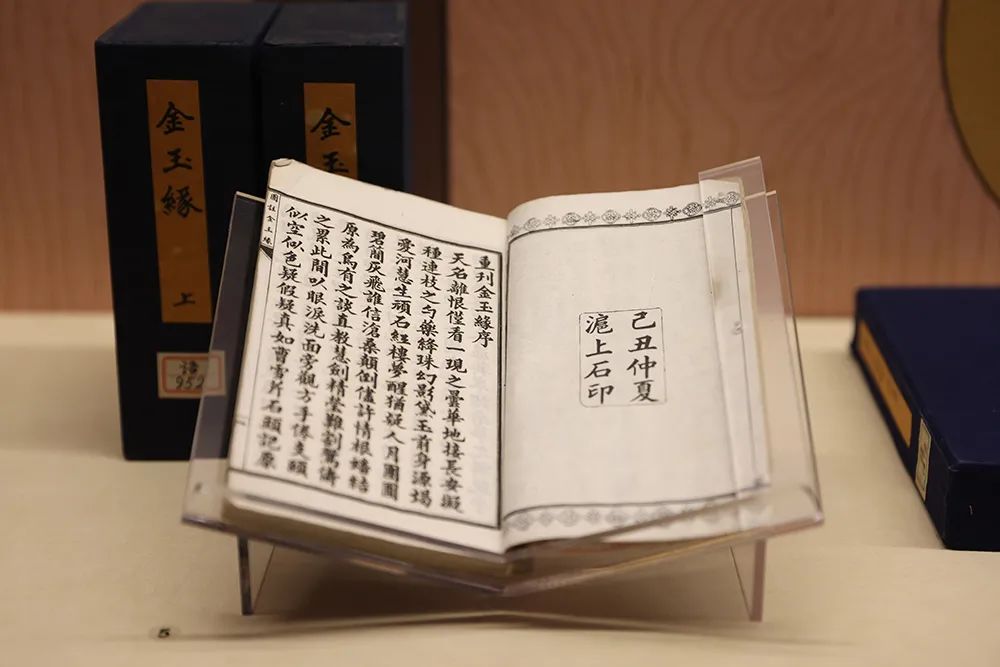 金玉緣
上
952
金玉
己丑仲夏
滬上石印
重刊金玉緣序
天名離恨僅看一現之曇華地接長安擬
種連枝之勻藥絳珠幻影黛玉前身源竭
愛河慧生頑石紅樓夢醒猶疑人月團圓
碧簡灰飛誰信滄桑顛倒儘許情根蟠結
原為烏有之談直教慧劍精瑩難割鴛儔
之累此間以眼淚洗面旁觀方手倦支頤
似空似色疑假疑真如曹雪芹石頭記原
圖註金玉緣
5